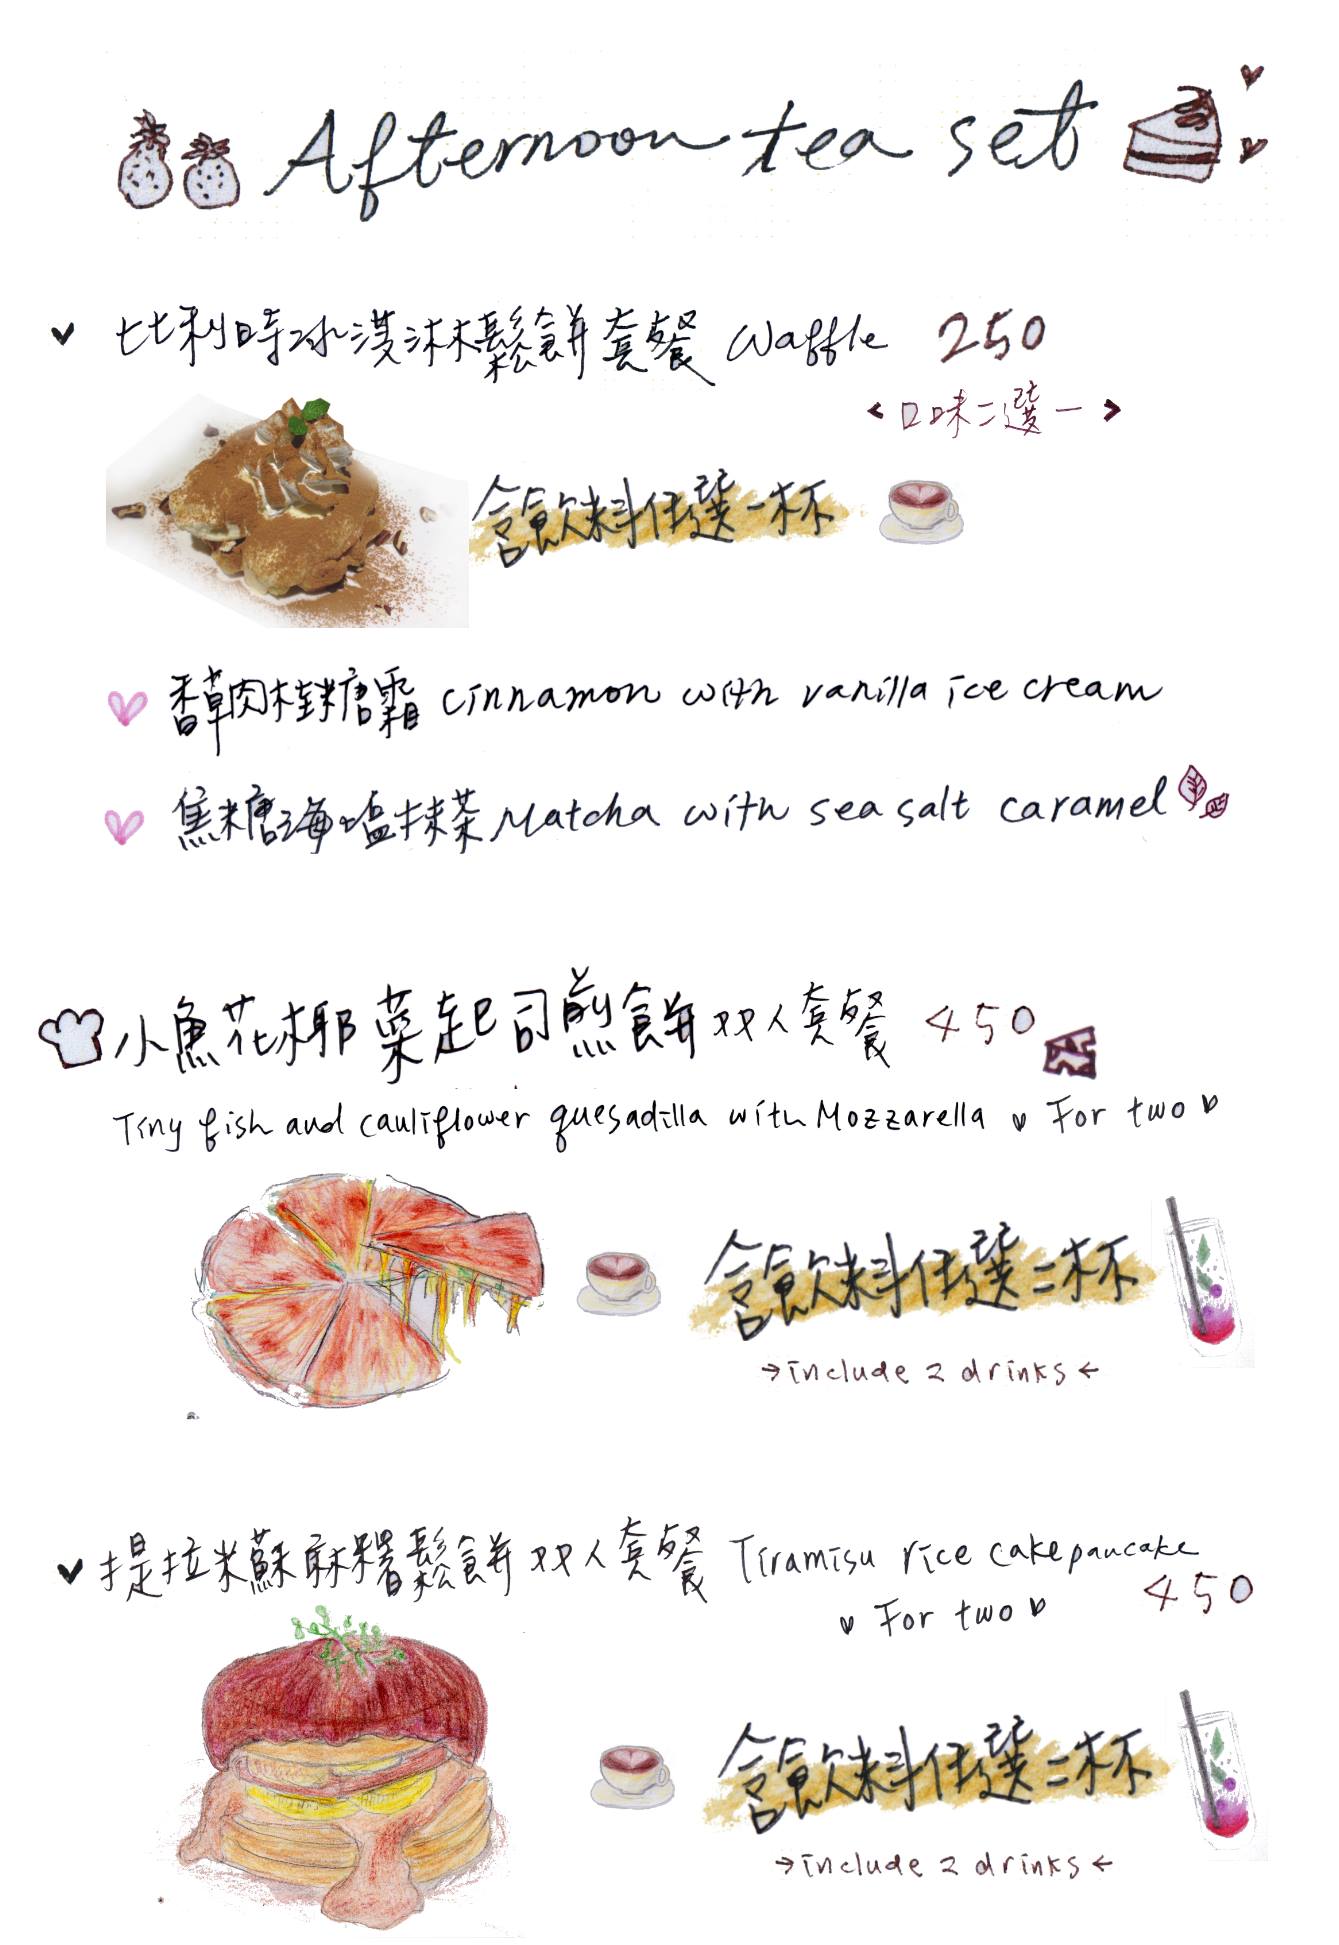 Afternoon tea set
比利時冰淇淋鬆餅套餐 Waffle 250
<口味二選一>
含飲料任選一杯
香草肉桂糖霜 cinnamon with vanilla ice cream
焦糖海塩抹茶 Matcha with sea salt caramel
小魚花椰菜起司煎餅双人套餐 450
Tiny fish and cauliflower quesadilla with Mozzarella For two
含飲料任選二杯
→include 2 drinks←
提拉米蘇麻糬鬆餅双人套餐 Tiramisu rice cake pancake
450
For two
含飲料任選二杯
→include 2 drinks←